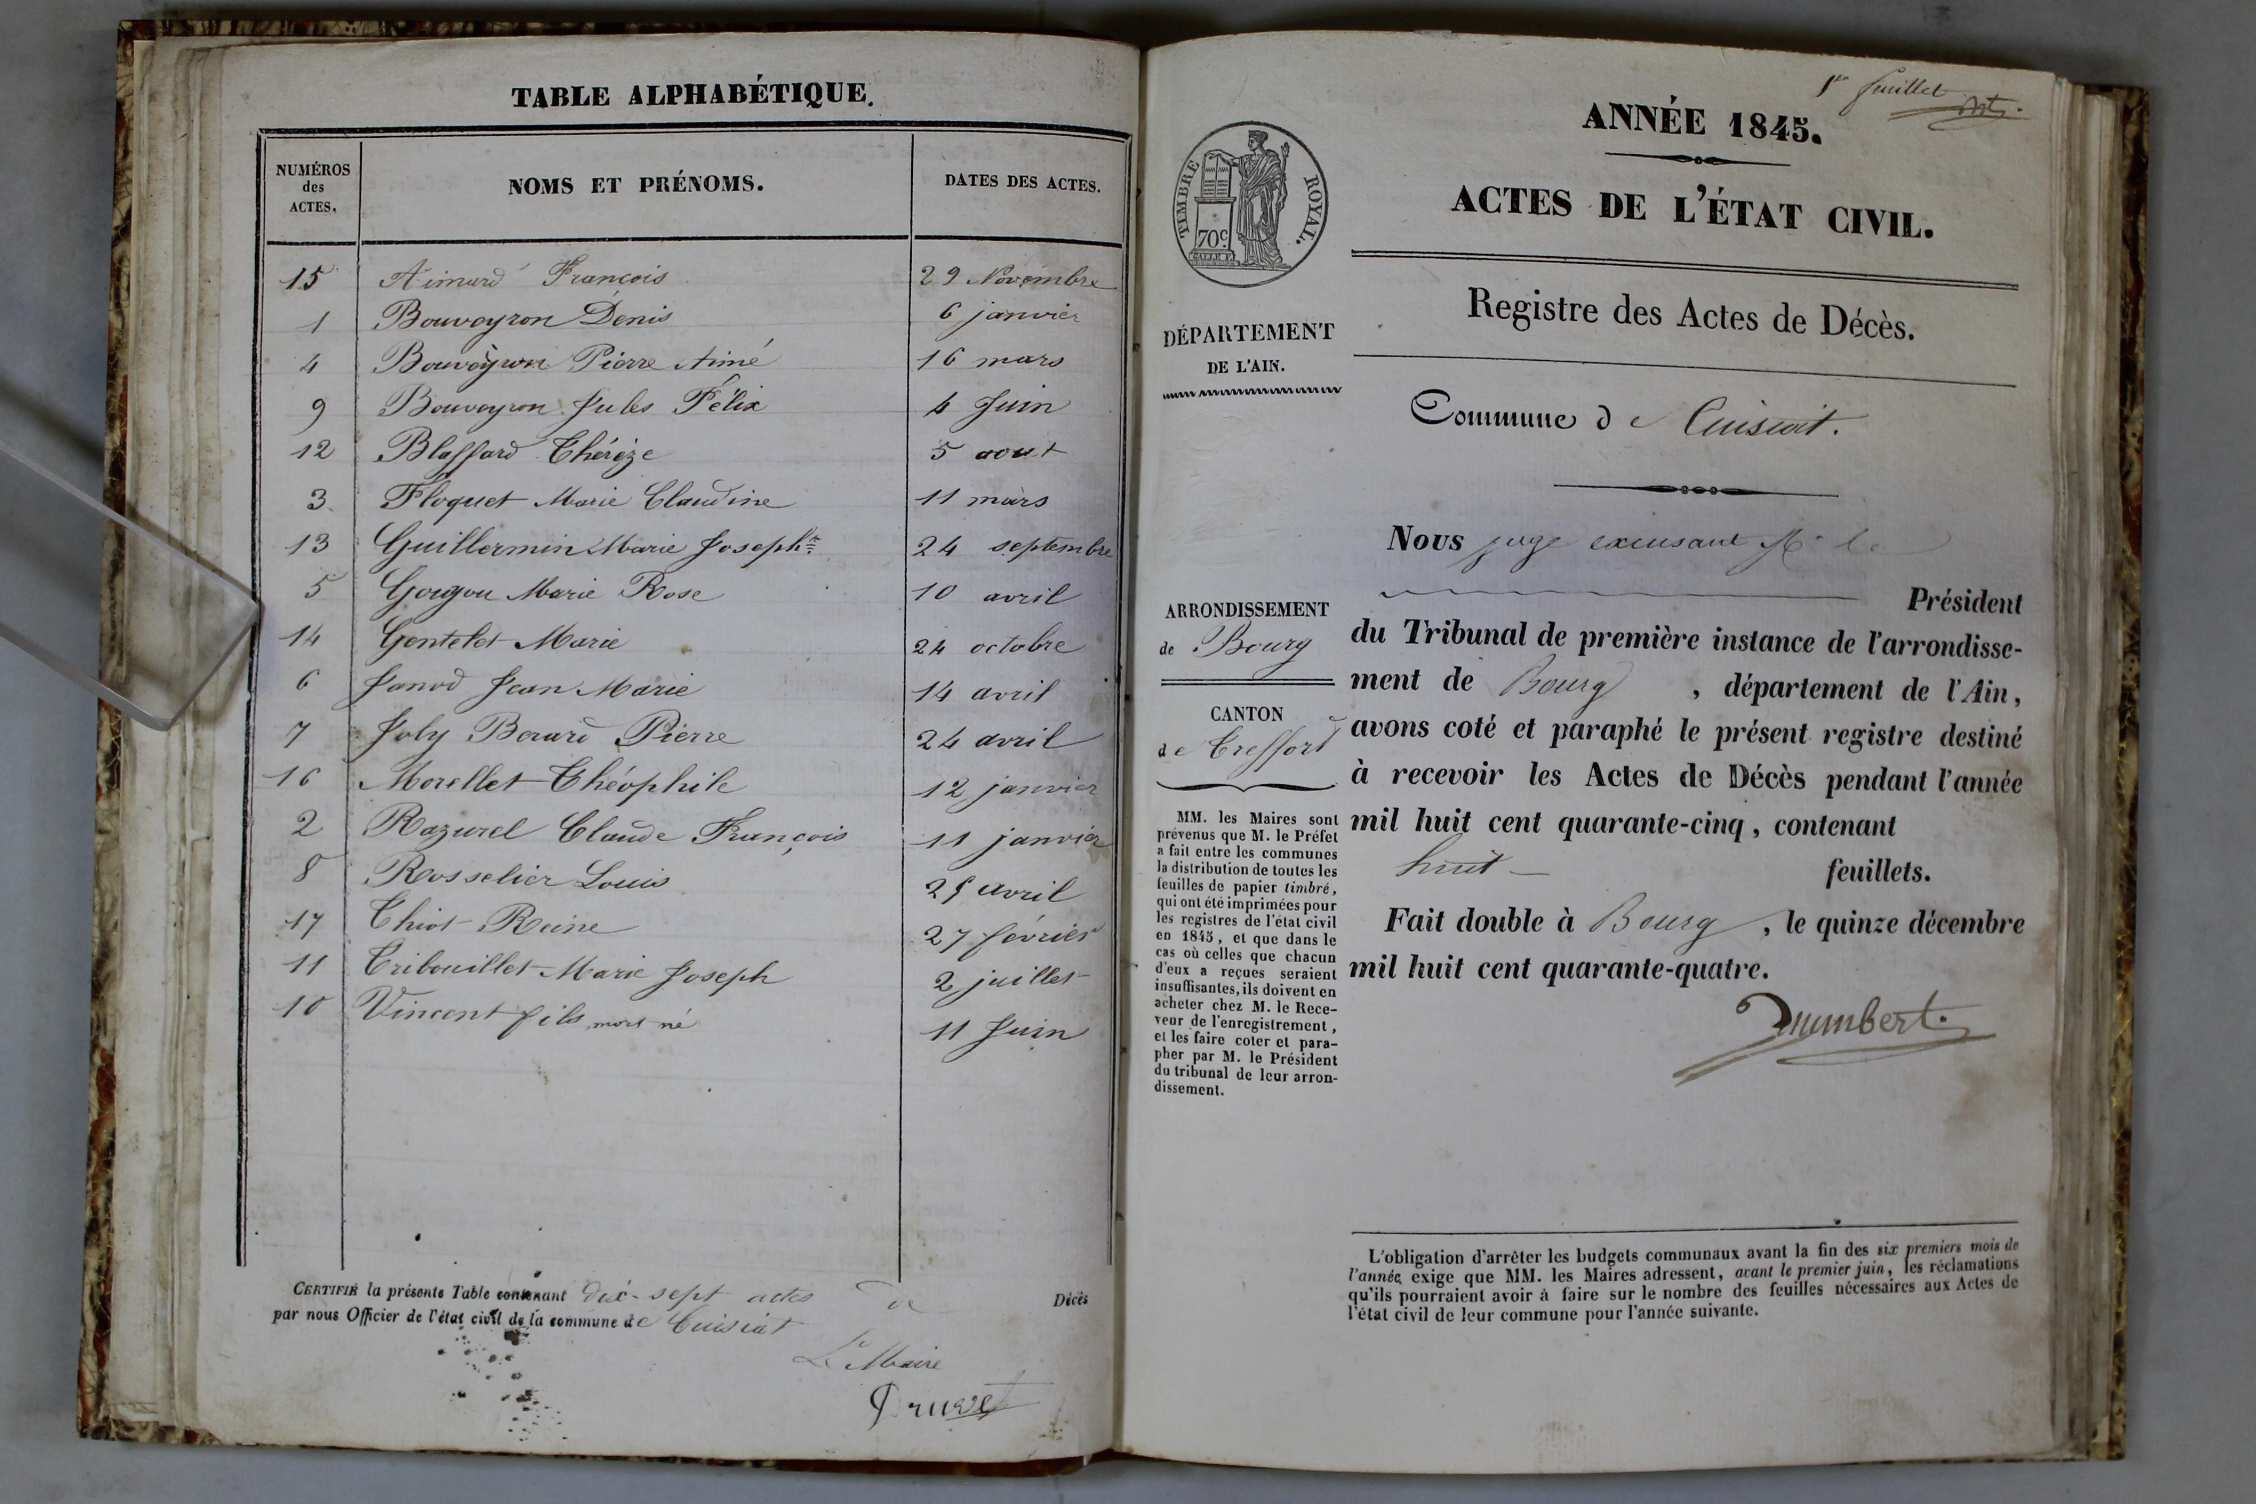 TABLE ALPHABÉTIQUE.
NUMÉROS
des
ACTES.
NOMS ET PRÉNOMS.
DATES DES ACTES.
15 Aimard François 29 Novembre
1 Bouveyron Denis 6 janvier
4 Bouveyron Pierre Aimé 16 mars
9 Bouveyron Jules Félix 4 Juin
12 Blaffard Thérèze 5 aout
3 Floquet Marie Claudine 11 mars
13 Guillermin Marie Josephte 24 septembre
5 Gougou Marie Rose 10 avril
14 Gentelet Marie 24 octobre
6 Janod Jean Marie 14 avril
7 Joly Berard Pierre 24 avril
16 Morellet Théophile 12 janvier
2 Razurel Claude François 11 janvier
8 Rosselier Louis 25 avril
17 Thiot Reine 27 février
11 Tribouillet Marie Joseph 2 juillet
10 Vincent fils mort né 11 Juin
CERTIFIÉ la présente Table contenant dix-sept actes de Décès
par nous Officier de l'état civil de la commune de Cuisiat
Le Maire
1er feuillet
ANNÉE 1845.
TIMBRE ROYAL.
70c
ACTES DE L'ÉTAT CIVIL.
Registre des Actes de Décès.
DÉPARTEMENT
DE L'AIN.
Commune de Cuisiat.
Nous juge excusant Mr le
Président
ARRONDISSEMENT
de Bourg
CANTON
de Treffort
du Tribunal de première instance de l'arrondisse-
ment de Bourg, département de l'Ain,
avons coté et paraphé le présent registre destiné
à recevoir les Actes de Décès pendant l'année
mil huit cent quarante-cinq, contenant
huit feuillets.
Fait double à Bourg, le quinze décembre
mil huit cent quarante-quatre.
MM. les Maires sont
prévenus que M. le Préfet
a fait entre les communes
la distribution de toutes les
feuilles de papier timbré,
qui ont été imprimées pour
les registres de l'état civil
en 1845, et que dans le
cas où celles que chacun
d'eux a reçues seraient
insuffisantes, ils doivent en
acheter chez M. le Rece-
veur de l'enregistrement,
et les faire coter et para-
pher par M. le Président
du tribunal de leur arron-
dissement.
L'obligation d'arrêter les budgets communaux avant la fin des six premiers mois de
l'année exige que MM. les Maires adressent, avant le premier juin, les réclamations
qu'ils pourraient avoir à faire sur le nombre des feuilles nécessaires aux Actes de
l'état civil de leur commune pour l'année suivante.